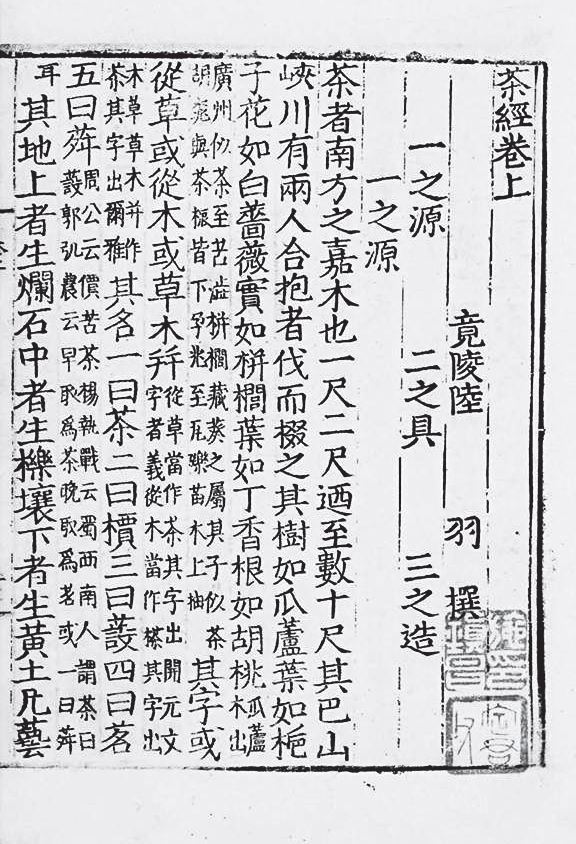 茶經卷上
竟陵陸 羽 撰
一之源 二之具 三之造
一之源
茶者南方之嘉木也一尺二尺迺至數十尺其巴山
峽川有兩人合抱者伐而掇之其樹如瓜蘆葉如梔
子花如白薔薇實如栟櫚葉如丁香根如胡桃瓜蘆木出
廣州似茶至苦澁栟櫚葵之屬其子似茶胡桃與茶根皆下孕兆至瓦礫苗木上抽其字或
從草或從木或草木并從草當作茶其字出開元文字者義從木當作搽其字出
木草草木并作荼其字出爾雅其名一曰茶二曰檟三曰蔎四曰茗
五曰荈周公云檟苦茶楊執戟云蜀西南人謂茶曰蔎郭弘農云早取爲茶晚取爲茗或一曰荈
耳其地上者生爛石中者生櫟壤下者生黃土凡藝